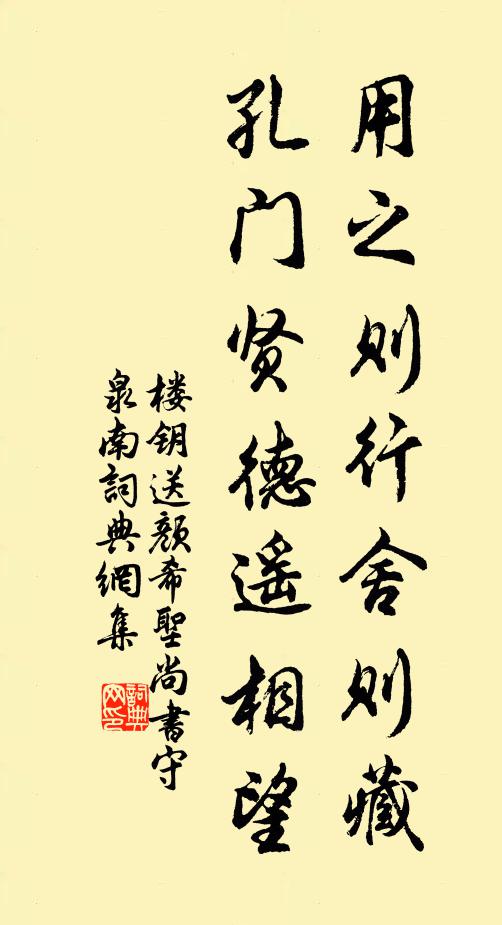 用之则行舍则藏
孔门贤德遥相望
楼钥送颜希聖尚書守
泉南詞典網集
詞典网印